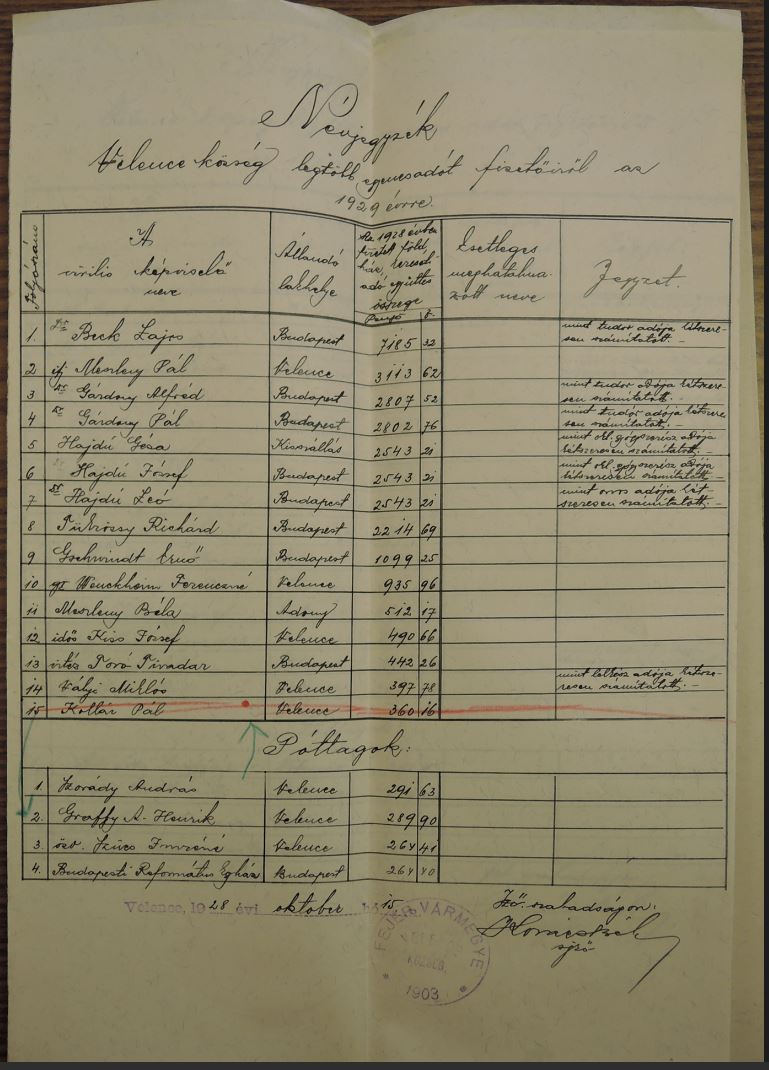 Névjegyzék
Velence község legtöbb egyenesadót fizetőiről az
1929 évre.
Folyószám
A virilis képviselő neve
Állandó lakhelye
Az 1928 évben fizetett föld, ház, kereseti adó együttes összege
Pengő f.
Esetleges meghatalmazott neve
Jegyzet.
1. Dr Beck Lajos Budapest 7185 32 mint tudor adója kétszeresen számítatott. -
2 ifj Meszleny Pál Velence 3113 62
3 Dr Gárdony Alfréd Budapest 2807 52 mint tudor adója kétszeresen számítatott. -
4 Dr Gárdony Pál Budapest 2802 76 mint tudor adója kétszeresen számítatott. -
5 Hajdú Géza Kisszállás 2543 21 mint okl. gógyszerész adója kétszeresen számítatott. -
6 Hajdú József Budapest 2543 21 mint okl. adója kétszeresen számítatott -
7 Dr Hajdú Leó Budapest 2543 21 mint orvos adója kétszeresen számítatott. -
8 Richárd Budapest 2214 69
9 Gschwindt Ernő Budapest 1099 25
10 gr Wenckheim Ferenczné Velence 935 96
11 Meszleny Béla Adony 512 17
12 idős Kiss József Velence 490 66
13 vitéz Toró Tivadar Budapest 442 26
14 Vályi Miklós Velence 397 78 mint lelkész adója kétszeresen számítatott. -
15 Kollár Pál Velence 360 16
Póttagok:
1. Szorády András Velence 291 63
2. Graffy A. Henrik Velence 289 90
3. özv. Szűcs Imréné Velence 264 41
4. Budapesti Református Egyház Budapest 264 40
Velence, 1928 évi október hó 15
Fző. szabadságon:
sjző
FEJÉR VÁRMEGYE
KÖZSÉG.
1903